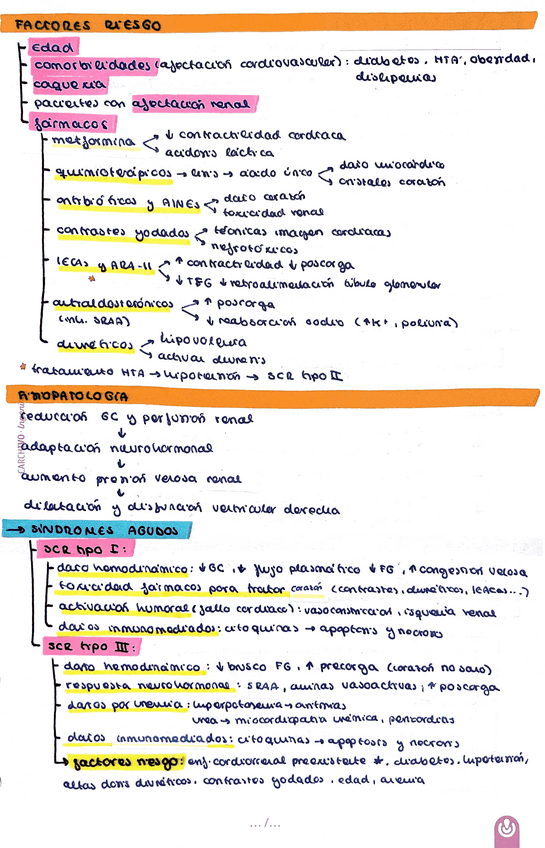 FACTORES RIESGO
Edad
comorbilidades (afectación cardiovascular): diabetes, HTA, obesidad,
dislipemias
caquexia
pacientes con afectación renal
fármacos
metformina
↓ contractilidad cardiaca
acidosis láctica
quimioterápicos → lisis → ácido único
daño miocárdico
cristales corazón
antibióticos y AINES
daño corazón
toxicidad renal
contrastes yodados
técnicas imagen cardiacas
nefrotóxicos
IECAs y ARA-II
↑ contractilidad ↓ poscarga
*
↓ TFG ↓ retroalimentación túbulo glomerular
antialdosterónicos
(inh. SRAA)
↑ poscarga
↓ reabsorción sodio (↑K+, poliuria)
diuréticos
hipovolemia
activar diuresis
* tratamiento HTA → hipotensión → SCR tipo II
FISIOPATOLOGÍA
reducción GC y perfusión renal
↓
adaptación neurohormonal
↓
aumento presión venosa renal
↓
dilatación y disfunción ventricular derecha
→ SÍNDROMES AGUDOS
SCR tipo I:
daño hemodinámico: ↓GC, ↓ flujo plasmático ↓FG, ↑ congestión venosa
toxicidad fármacos para tratar corazón (contrastes, diuréticos, IEACAs...)
activación humoral (fallo cardiaco): vasoconstricción, isquemia renal
daños inmunomediados: citoquinas → apoptosis y necrosis
SCR tipo III:
daño hemodinámico: ↓ brusco FG, ↑ precarga (corazón no sano)
respuesta neurohormonal: SRAA, aminas vasoactivas, ↑ poscarga
daños por uremia: hiperpotasemia → arritmias
urea → miocardiopatía urémica, pericarditis
daños inmunomediados: citoquinas → apoptosis y necrosis
factores riesgo: enf. cardiorrenal preexistente *, diabetes, hipotensión,
altas dosis diuréticos, contrastes yodados, edad, anemia
... / ...